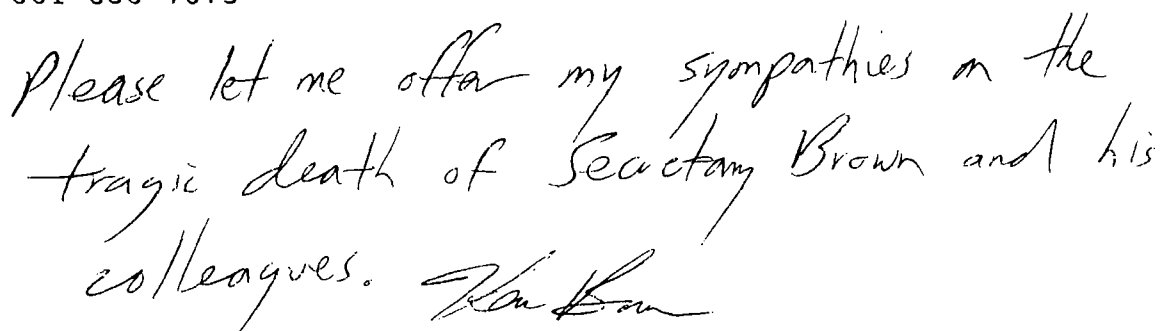 Please let me offer my sympathies on the
tragic death of Secretary Brown and his
colleagues. Ken Brown